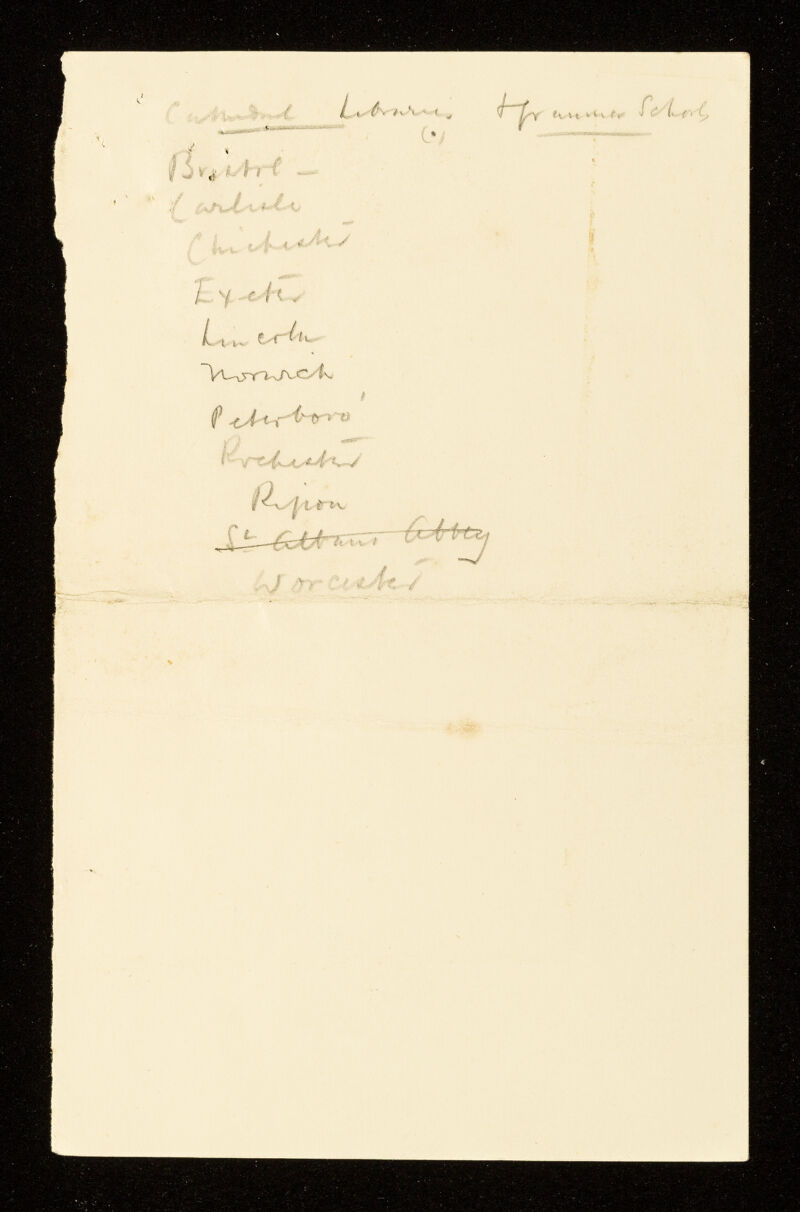 Cathedral Libraries & Grammar Schools
Bristol —
Carlisle
Chichester
Exeter
Lincoln
Norwich
Peterboro'
Rochester
Ripon
St Albans Abbey
Worcester